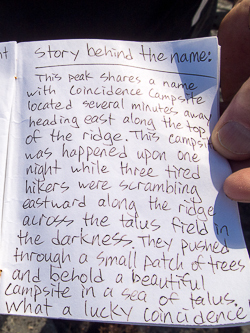 nt
story behind the name:
This peak shares a name
with Coincidence Campsite
located several minutes away
heading east along the top
of the ridge. This campsi
was happened upon one
night while three tired
hikers were scrambling
eastward along the ridge
across the talus field in
the darkness. They pushed
through a small patch of trees
and behold a beautiful
campsite in a sea of talus.
what a lucky coincidence